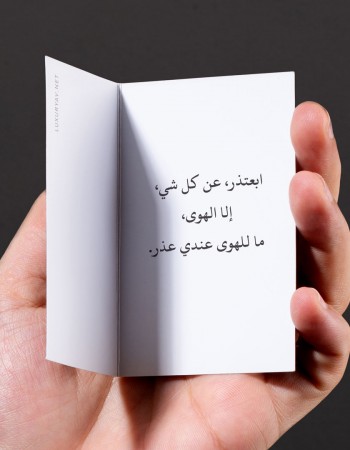 LUXURYAY.NET
ابعتذر، عن كل شي،
إلا الهوى،
ما للهوى عندي عذر.